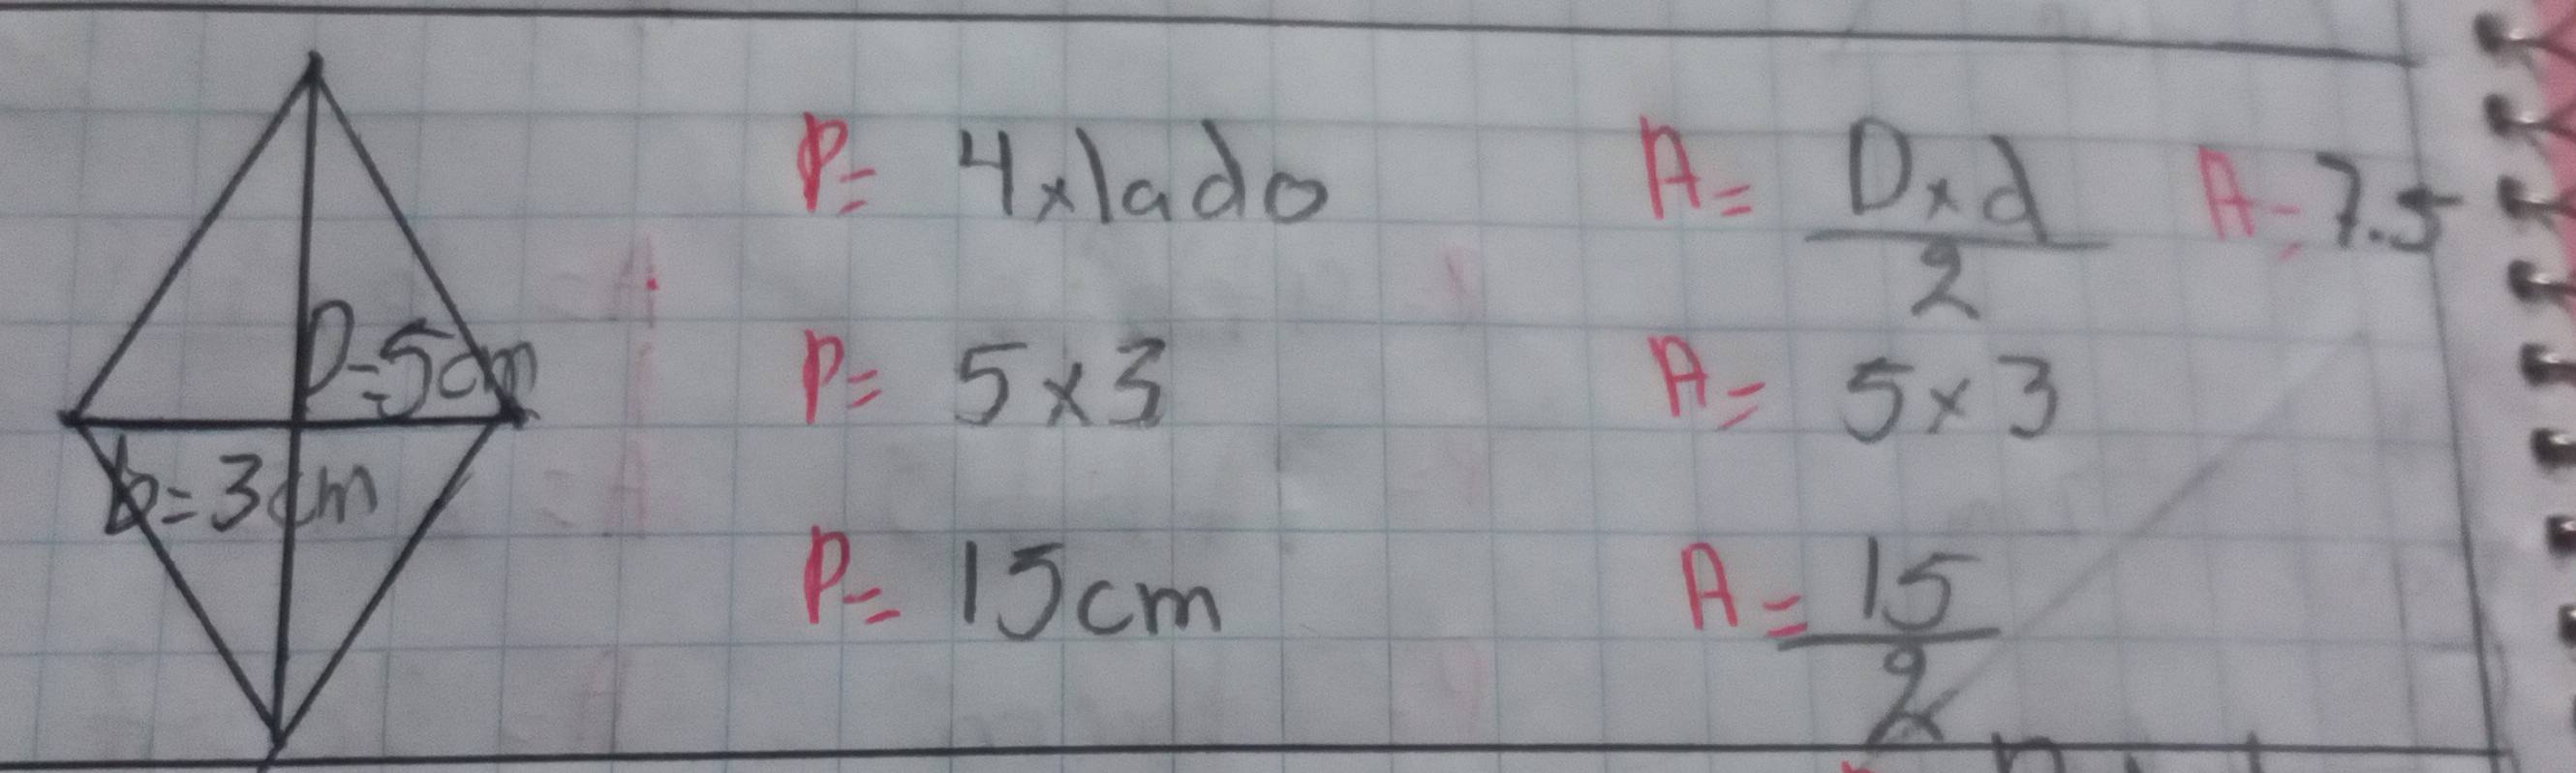 D=5cm
b=3cm
P= 4xlado
P= 5x3
P= 15cm
A= Dxd
2
A= 5x3
A= 15
2
A= 7.5